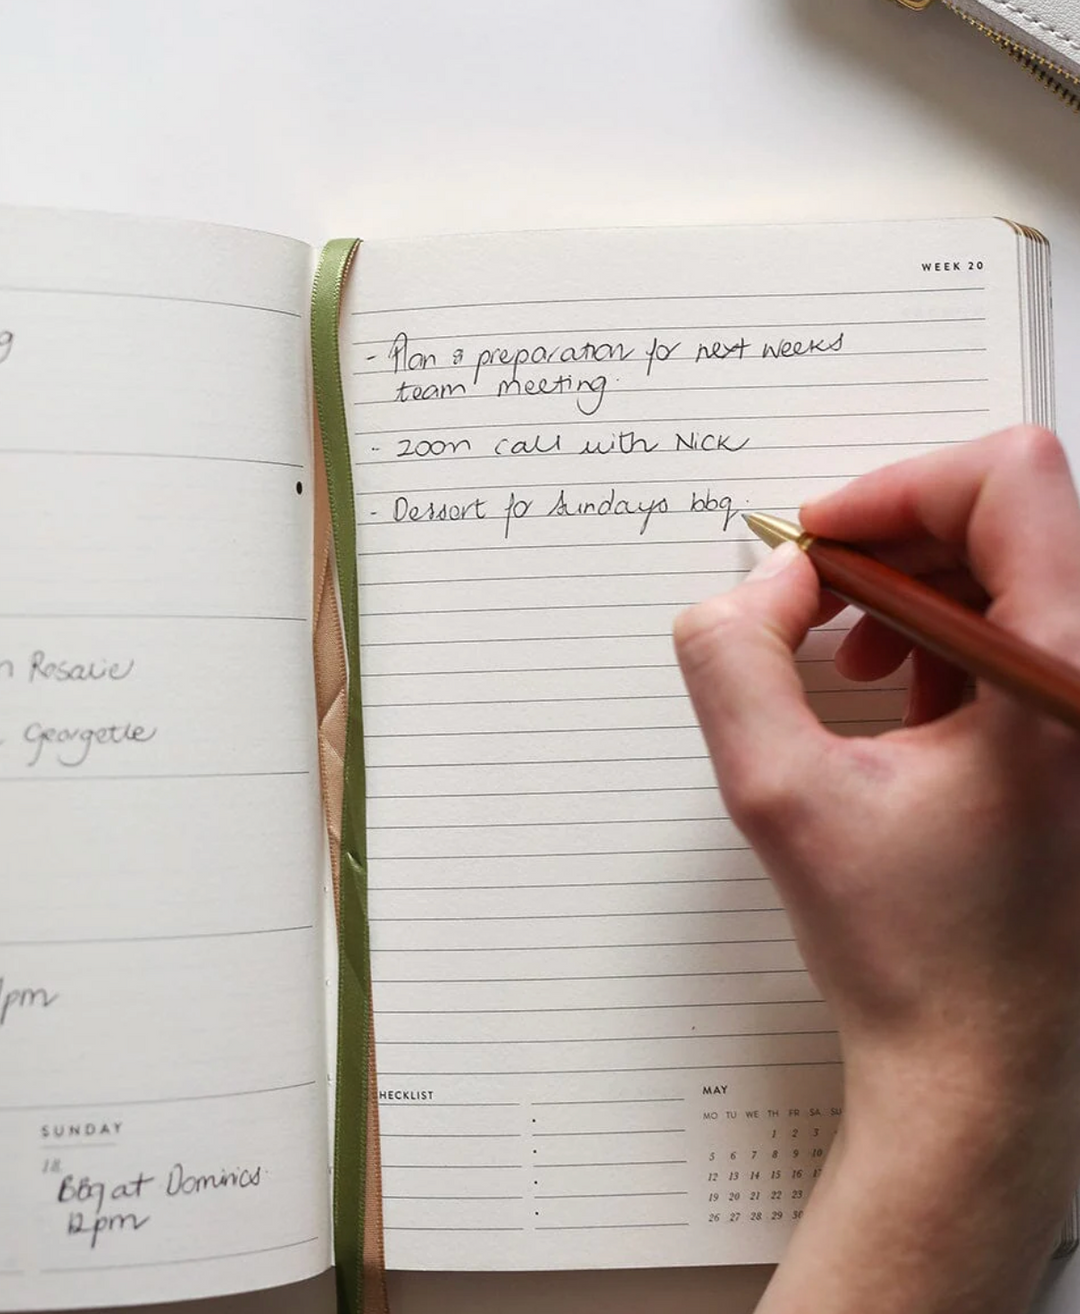 g
n Rosalie
Georgette
pm
SUNDAY
18
BBq at Dominics.
12pm
WEEK 20
- Plan & preparation for next weeks
team meeting.
- Zoom call with Nick
- Dessert for Sundays bbq.
HECKLIST
MAY
MO TU WE TH FR SA SU
1 2 3
5 6 7 8 9 10
12 13 14 15 16 17
19 20 21 22 23
26 27 28 29 30